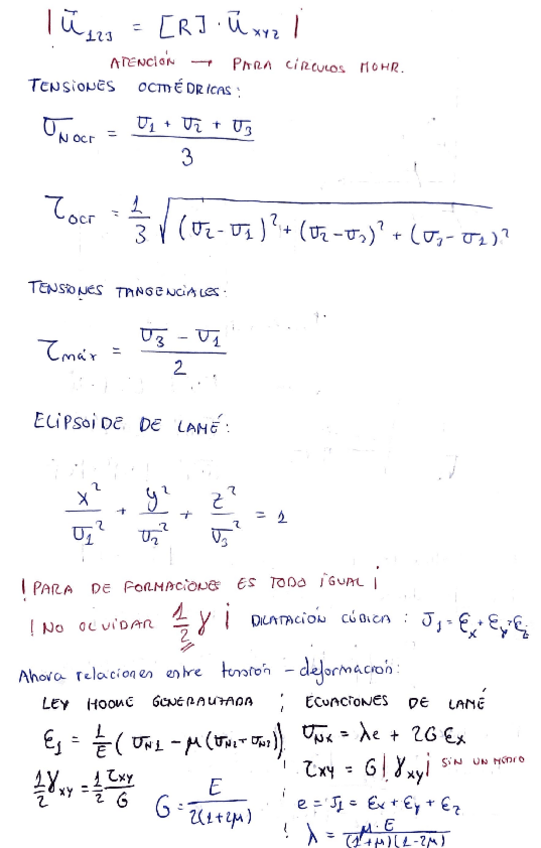 | ū₁₂₃ = [R] · ū_xyz |
ATENCIÓN → PARA CÍRCULOS MOHR.
TENSIONES OCTAÉDRICAS:
σ_N oct = (σ₁ + σ₂ + σ₃) / 3
τ_oct = 1/3 √((σ₂ - σ₁)² + (σ₂ - σ₃)² + (σ₃ - σ₁)²)
TENSIONES TANGENCIALES:
τ_máx = (σ₃ - σ₁) / 2
ELIPSOIDE DE LAMÉ:
x²/σ₁² + y²/σ₂² + z²/σ₃² = 1
¡PARA DEFORMACIONES ES TODO IGUAL¡
¡NO OLVIDAR 1/2 γ¡ DILATACIÓN CÚBICA: J₁ = εx + εy + εz
Ahora relaciones entre tensión - deformación:
LEY HOOKE GENERALIZADA ¦ ECUACIONES DE LAMÉ
ε₁ = 1/E (σ_N1 - μ(σ_N2 + σ_N3)) σ_Nx = λe + 2Gεx
1/2 γxy = 1/2 τxy/G τxy = G¡γxy¡ SIN UN MEDIO
G = E / 2(1+2μ) e = J₁ = εx + εy + εz
λ = μ·E / (1+μ)(1-2μ)